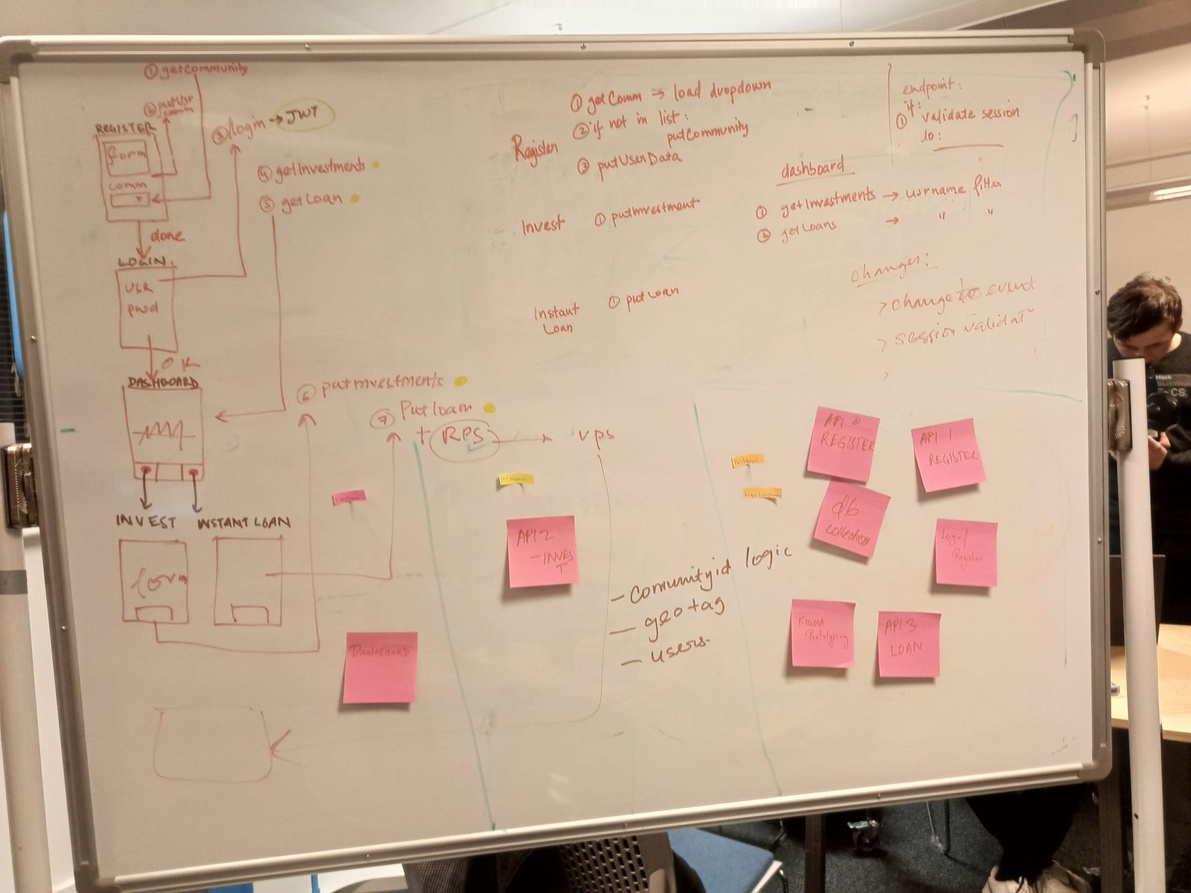 ① getCommunity
② putUsr
REGISTER
form
comm
done
③ Login → JWT
④ getInvestments
⑤ getLoan
LOGIN.
USR
pwd
OK
DASHBOARD
INVEST
INSTANT LOAN
form
⑥ putInvestments
⑦ Put loan
+ RPS → vps
Register
① getComm → load dropdown
② if not in list:
putCommunity
③ putUserData
Invest
① putInvestment
Instant
Loan
① putLoan
endpoint:
① if:
validate session
do:
dashboard
① getInvestments → usrname filter
② getLoans → " "
changes:
> session validat
>
- Comunityid logic
- geo tag
- users.
DASHBOARD
API 2
- INVEST
REGISTER
API 1
REGISTER
db
collections
Login/
Register
API 3
LOAN